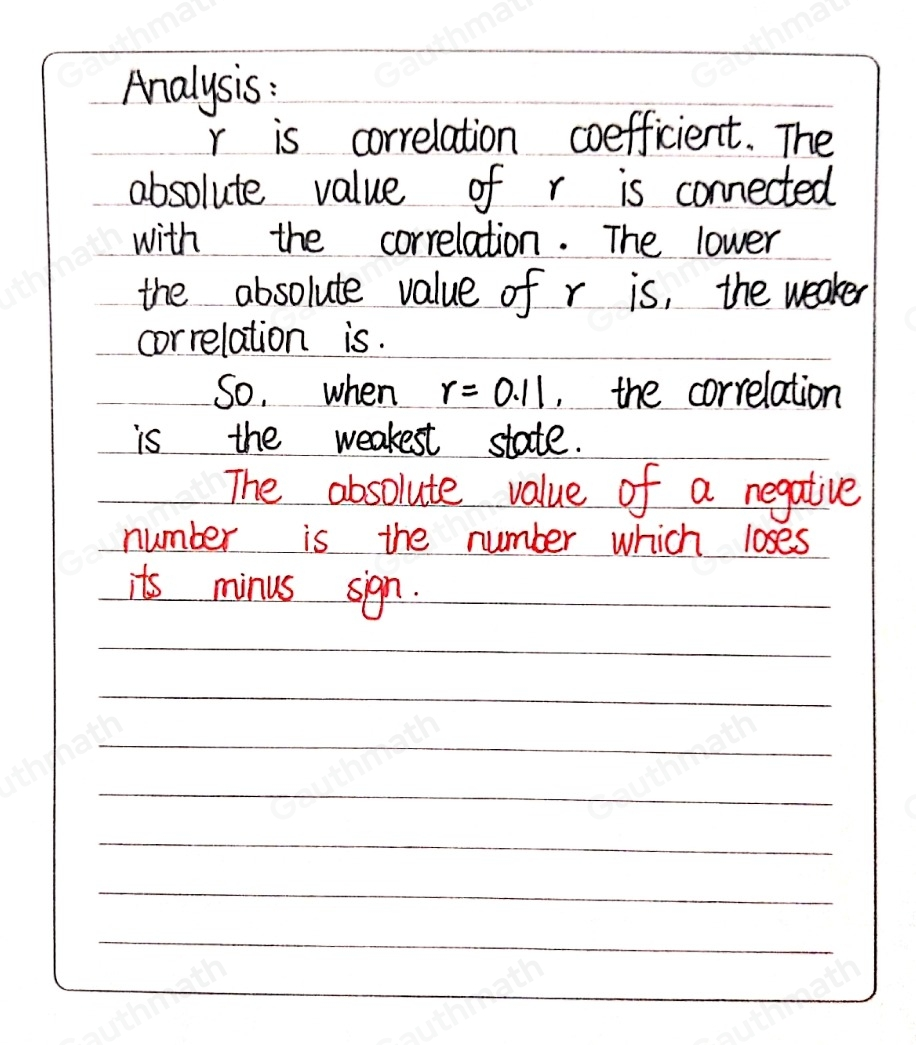 Analysis:
r is correlation coefficient. The
absolute value of r is connected
with the correlation. The lower
the absolute value of r is, the weaker
correlation is.
So, when r= 0.11, the correlation
is the weakest state.
The absolute value of a negative
number is the number which loses
its minus sign.
Gauthmath